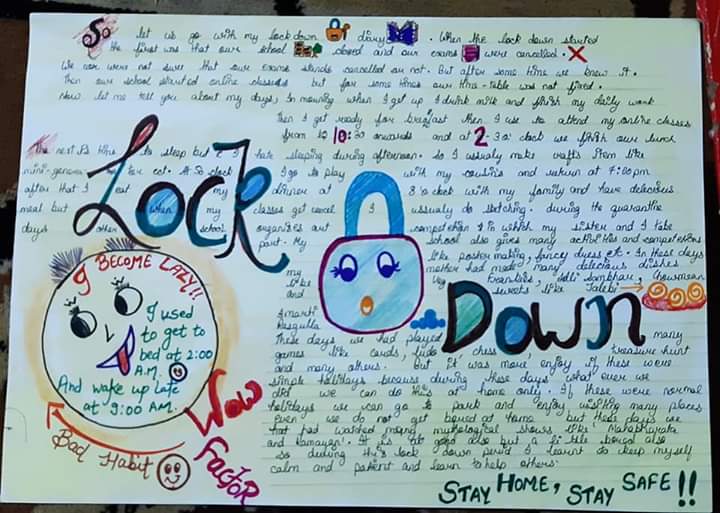 So let us go with my lock down diary. When the lock down started
the first was that our school closed and our exams were cancelled.
We were not sure that our exams stands cancelled or not. But after some time we knew it.
Then our school started online classes but for some times our time-table was not fixed.
Now let me tell you about my days. In morning when I get up I drink milk and finish my daily work
then I get ready for breakfast then I use to attend my online classes
from 10:30 onwards and at 2:30 clock we finish our lunch
the next is time to sleep but I hate sleeping during afternoon. So I usualy make crafts item like
mini-generator clock I go to play with my cousins and return at 7:00 pm
after that I eat my dinner at 8 o clock with my family and have delicious
meal but when my classes get cancel I usualy do sketching. during the quarantine
days other school organizes art competition in which my sister and I take
part. My school also gives many activities and competetions
like poster making, fancy dress etc. In these days
my mother had made many delicious dishes
like Veg Idli Sambhar, Chowmean
and sweets like Jalebi
Imarti
Rasgulla
LOCK
DOWN
These days we had played many
games like cards, ludo, chess, treasure hunt
and many others. But it was more enjoy if these were
simple holidays because during these days what ever we
did we can do this at home only. If these were normal
holidays we can go to park and enjoy visiting many places
Even we do not get bored at home but these days we
had watched many mythological shows like 'Mahabharata
and Ramayan'. It is too good also but a little bored also
so during this lock down period I learnt to keep myself
calm and patient and learn to help others.
I BECOME LAZY!!
I used
to get to
bed at 2:00
A.M.
And wake up late
at 9:00 AM.
Wow
Factor
Bad Habit
STAY HOME, STAY SAFE!!